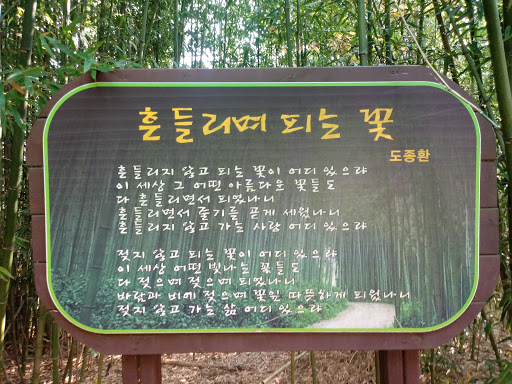 흔들리며 피는 꽃
도종환
흔들리지 않고 피는 꽃이 어디 있으랴
이 세상 그 어떤 아름다운 꽃들도
다 흔들리면서 피었나니
흔들리면서 줄기를 곧게 세웠나니
흔들리지 않고 가는 사랑 어디 있으랴
젖지 않고 피는 꽃이 어디 있으랴
이 세상 어떤 빛나는 꽃들도
다 젖으며 젖으며 피었나니
바람과 비에 젖으며 꽃잎 따뜻하게 피웠나니
젖지 않고 가는 삶 어디 있으랴